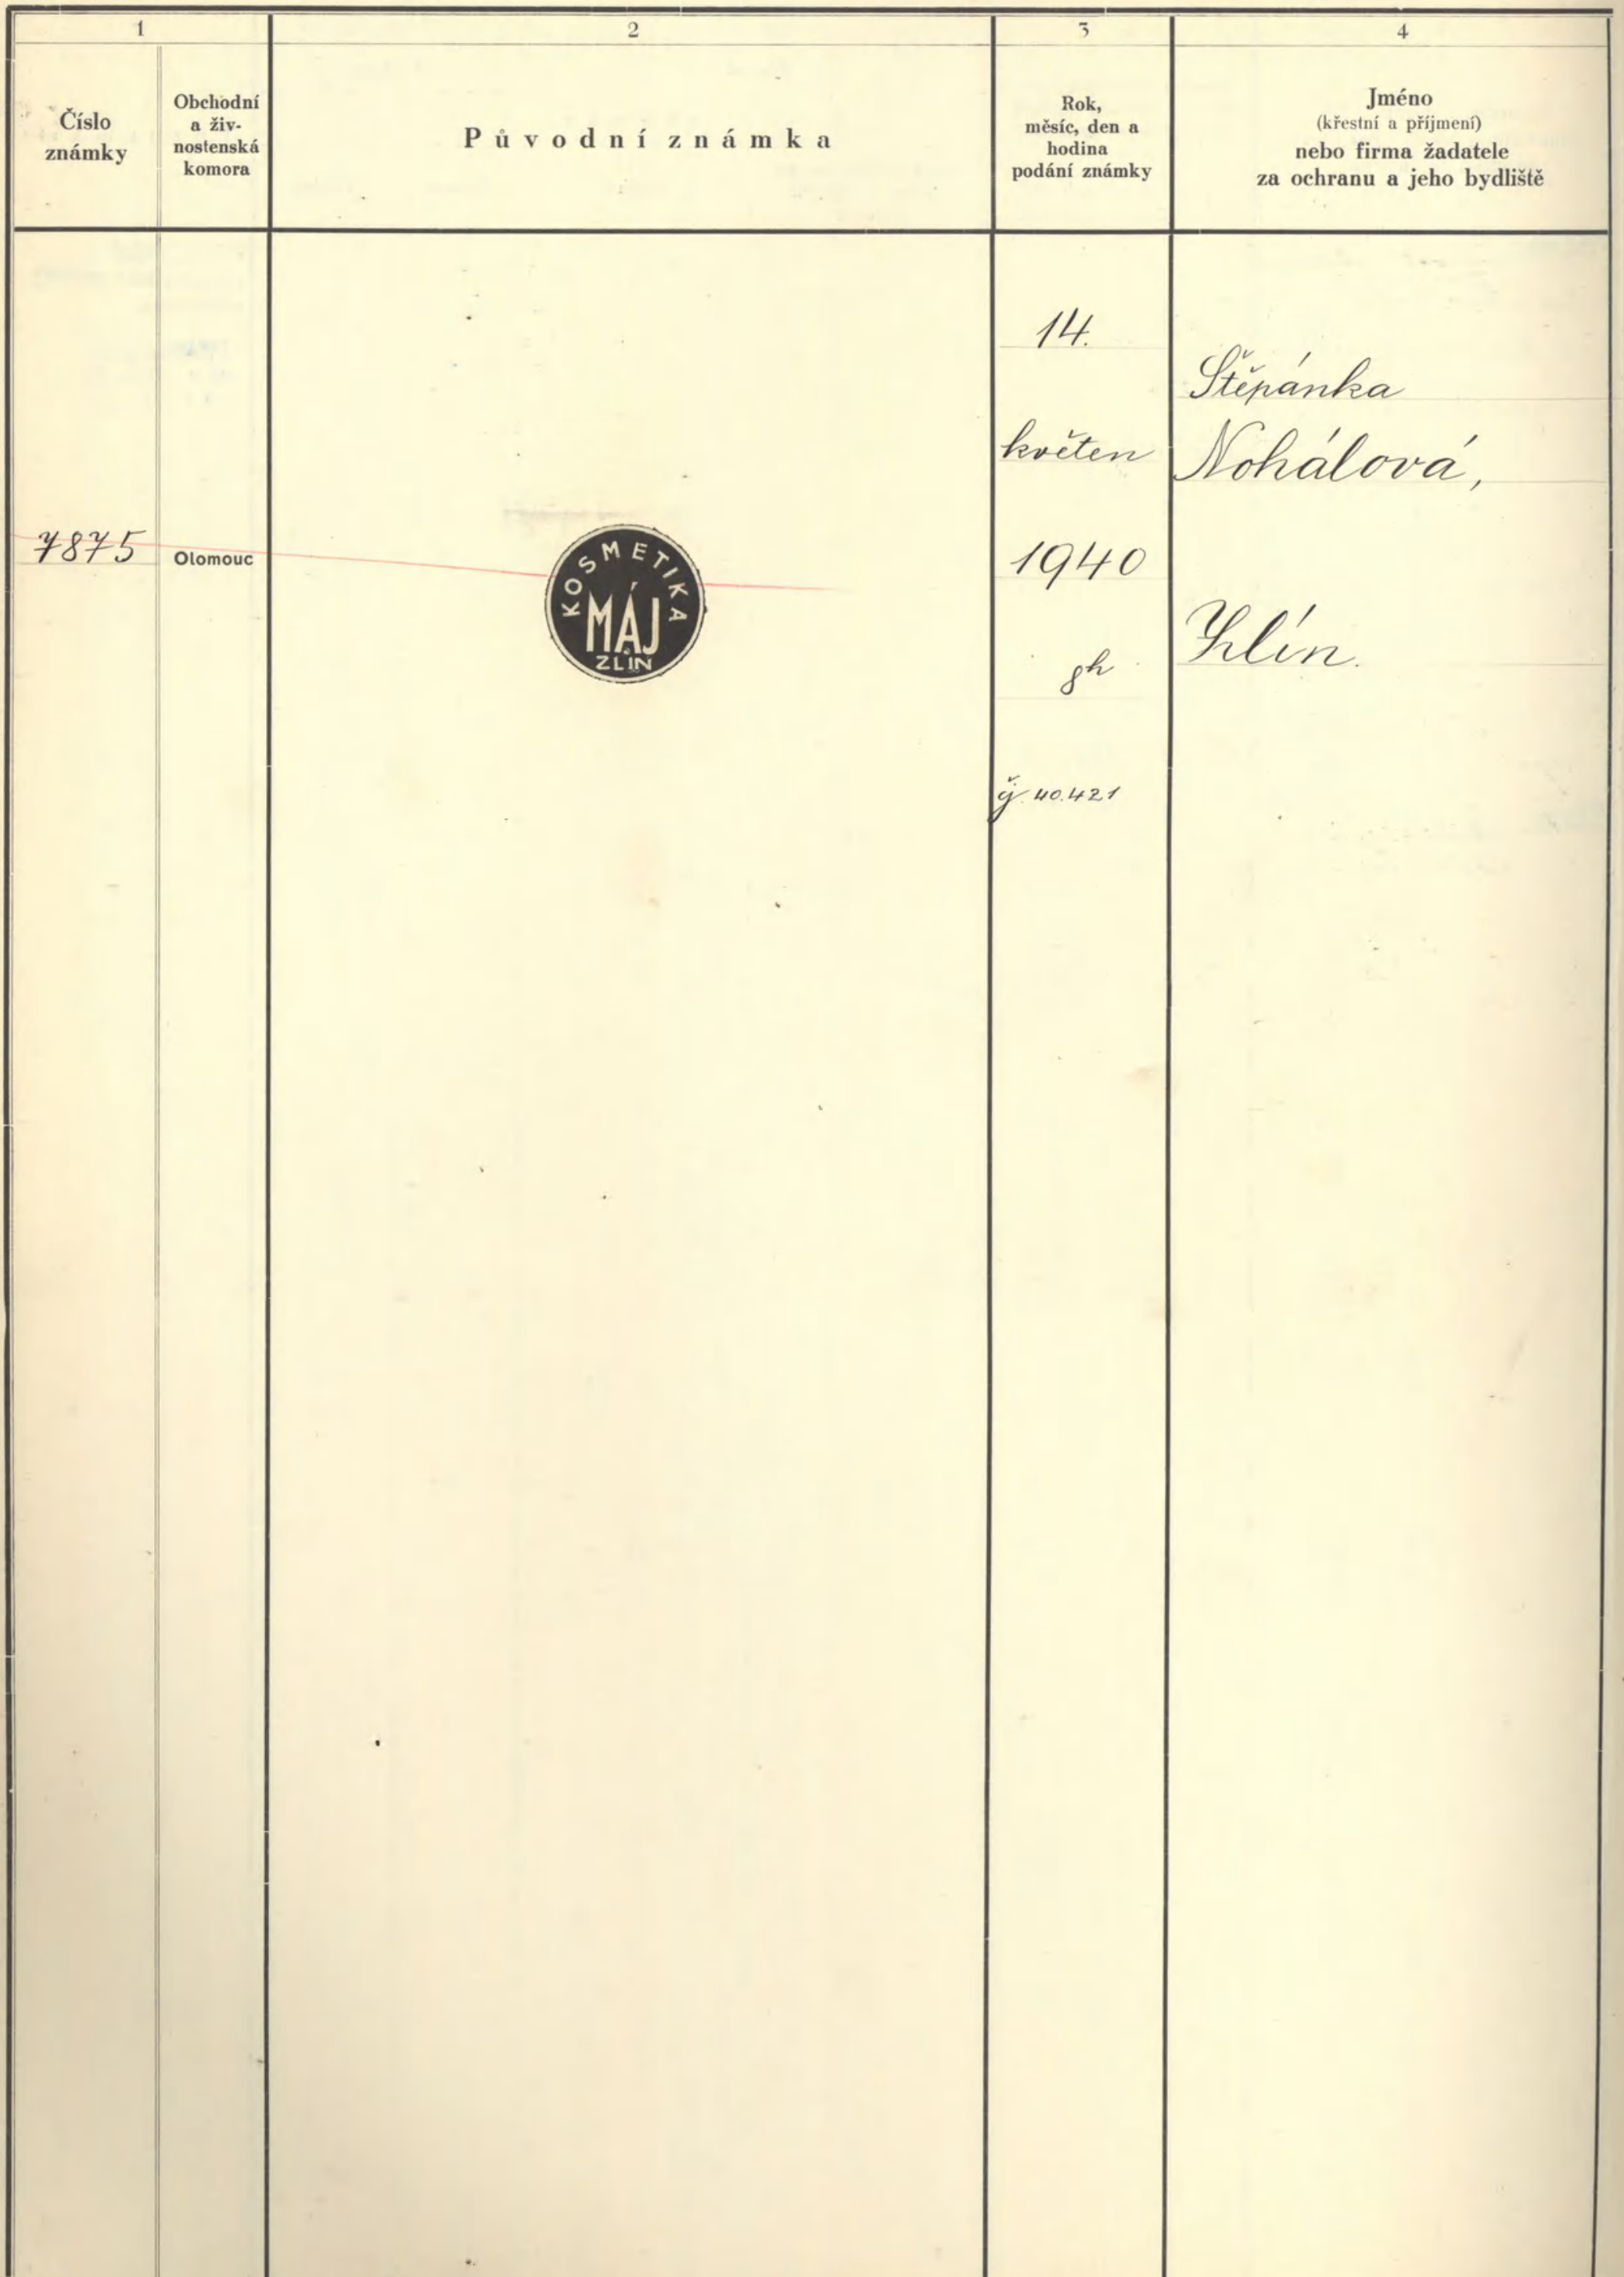 1
2
3
4
Číslo
známky
Obchodní
a živ-
nostenská
komora
Původní známka
Rok,
měsíc, den a
hodina
podání známky
Jméno
(křestní a příjmení)
nebo firma žadatele
za ochranu a jeho bydliště
7875
Olomouc
KOSMETIKA
MÁJ
ZLÍN
14.
květen
1940
8h
čj. 40.421
Štěpánka
Nohálová,
Zlín.